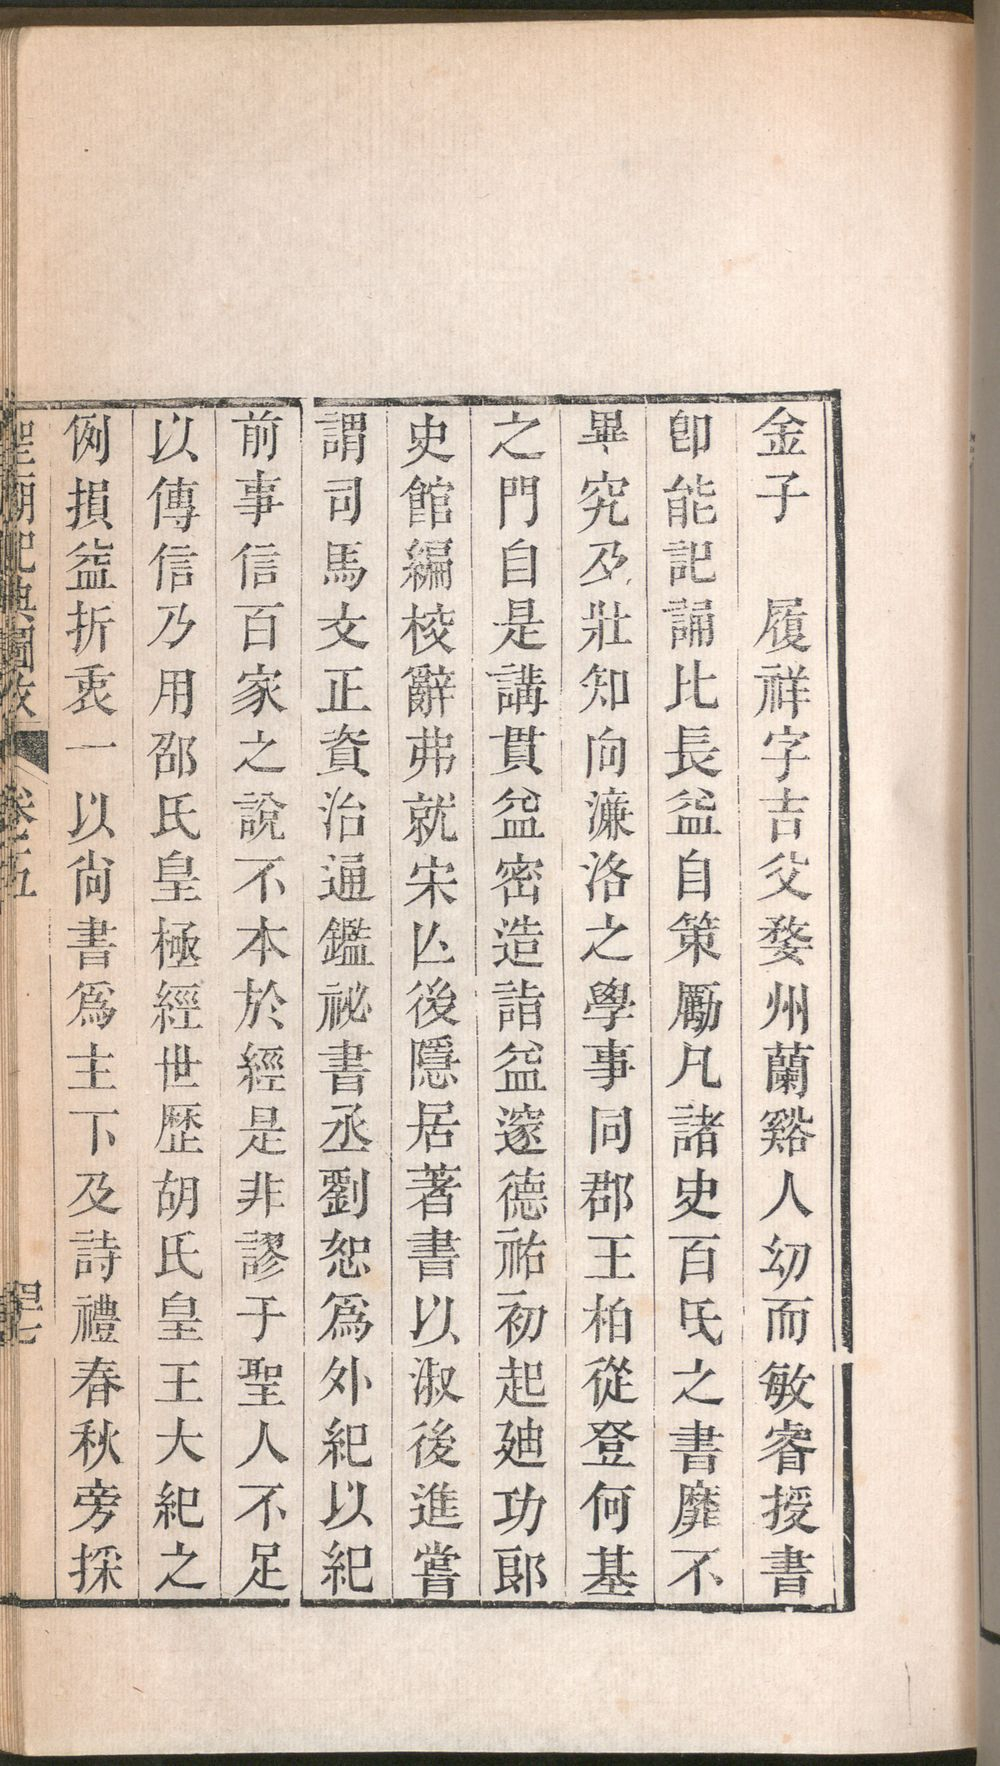 金子　履祥字吉父婺州蘭谿人幼而敏睿授書
卽能記誦比長益自策勵凡諸史百氏之書靡不
畢究及壯知向濂洛之學事同郡王柏從登何基
之門自是講貫益密造詣益邃德祐初起廸功郎
史館編校辭弗就宋亾後隱居著書以淑後進嘗
謂司馬文正資治通鑑祕書丞劉恕爲外紀以紀
前事信百家之說不本於經是非謬于聖人不足
以傳信乃用邵氏皇極經世歷胡氏皇王大紀之
例損益折衷一以尙書爲主下及詩禮春秋旁採
聖廟祀典圖攷　卷五　四七